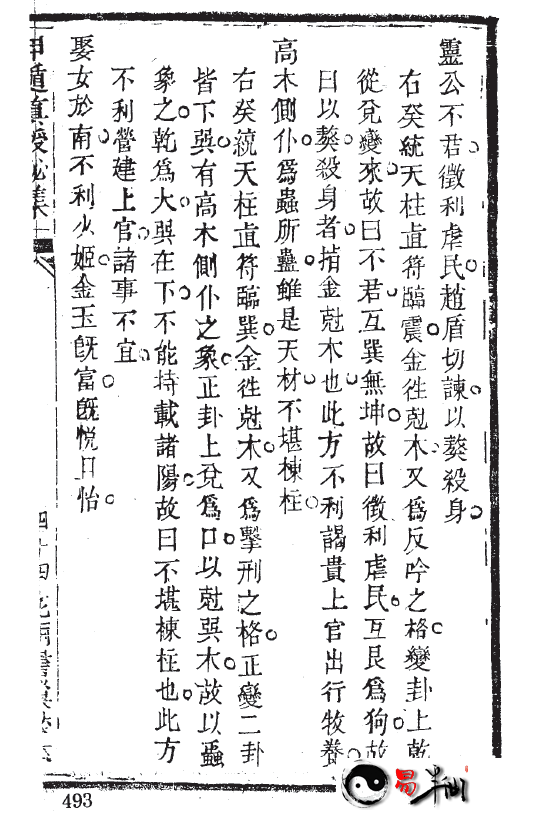 靈公不君徵利虐民趙盾切諫以獒殺身
右癸統天柱直符臨震金徃尅木又爲反吟之格變卦上乾
從兌變來故曰不君互巽無坤故曰徵利虐民互艮爲狗故
曰以獒殺身者指金尅木也此方不利謁貴上官出行牧養
高木側仆爲蟲所蠱雖是天材不堪棟柱
右癸統天柱直符臨巽金徃尅木又爲擊刑之格正變二卦
皆下巽有高木側仆之象正卦上兌爲口以尅巽木故以蟲
象之乾爲大巽在下不能持載諸陽故曰不堪棟柱也此方
不利營建上官諸事不宜
娶女於南不利少姬金玉旣富旣悅且怡
甲遁真授秘集
四十四
493
易